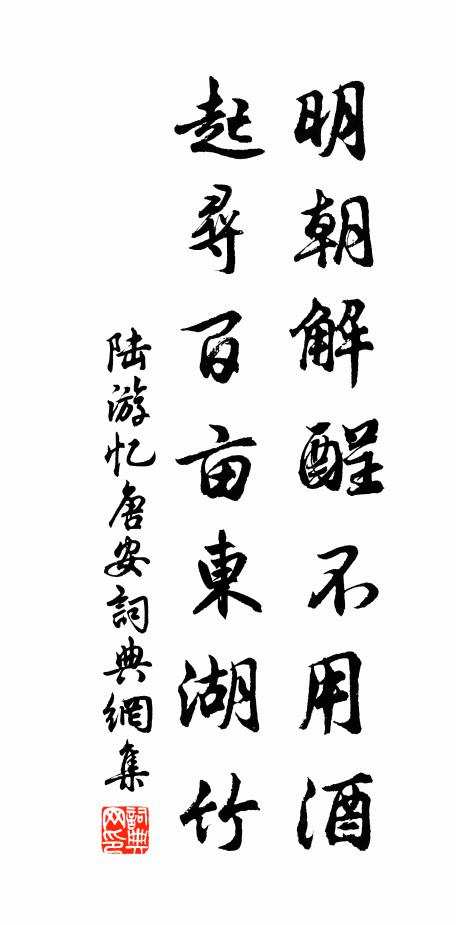 明朝解酲不用酒
起尋百亩東湖竹
陆游忆唐安詞典網集
詞典网印